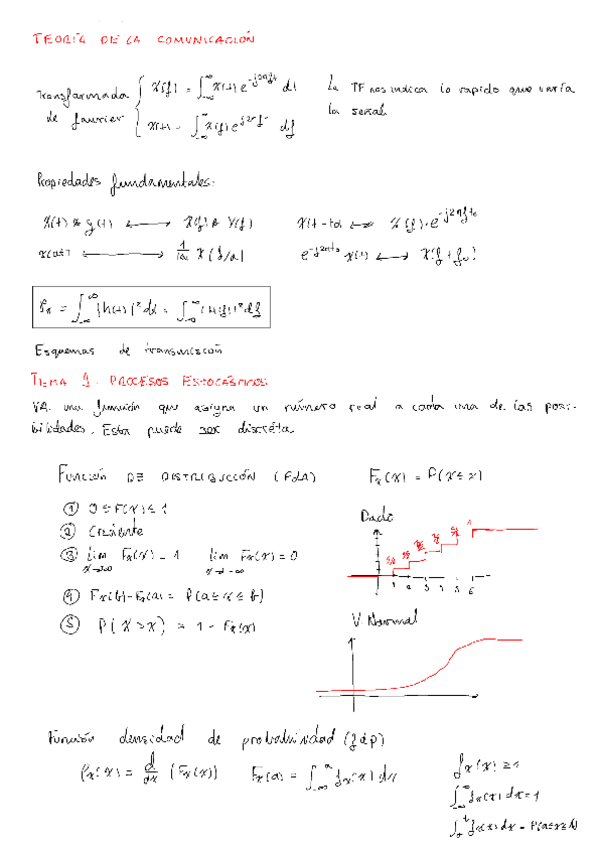 TEORÍA DE LA COMUNICACIÓN
Transformada de fourier
X(f) = ∫_{-∞}^{∞} x(t) e^{-j2πft} dt
x(t) = ∫_{-∞}^{∞} X(f) e^{j2πft} df
La TF nos indica lo rapido que varía
la señal
Propiedades fundamentales:
x(t) * y(t) ⟷ X(f) · Y(f) x(t-to) ⟷ X(f) · e^{-j2πfto}
x(at) ⟷ 1/|a| X(f/a) x(t) ⟷ X(f+fo)
= ∫_{-∞}^{∞} |h(t)|² dt = ∫_{-∞}^{∞} |H(f)|² df
Esquemas de transmisión
TEMA 1. PROCESOS ESTOCÁSTICOS
VA. una función que asigna un número real a cada una de las posi-
bilidades. Esta puede ser discreta.
FUNCIÓN DE DISTRIBUCCIÓN (FdA) Fx(x) = P(X≤x)
① 0≤F(x)≤1
② Creciente
③ lim x→∞ Fx(x) = 1 lim x→-∞ Fx(x) = 0
④ Fx(b)-Fx(a) = P(a≤x≤b)
⑤ P(X>x) = 1 - Fx(x)
Dado
1
1 2 3 4 5 6
V. Normal
Función densidad de probabilidad (fdp)
fx(x) = d/dx (Fx(x)) Fx(a) = ∫_{-∞}^{a} fx(x) dx
fx(x) ≥
∫_{-∞}^{∞} fx(x) dx = 1
fx(x) dx = P(a≤x≤b)